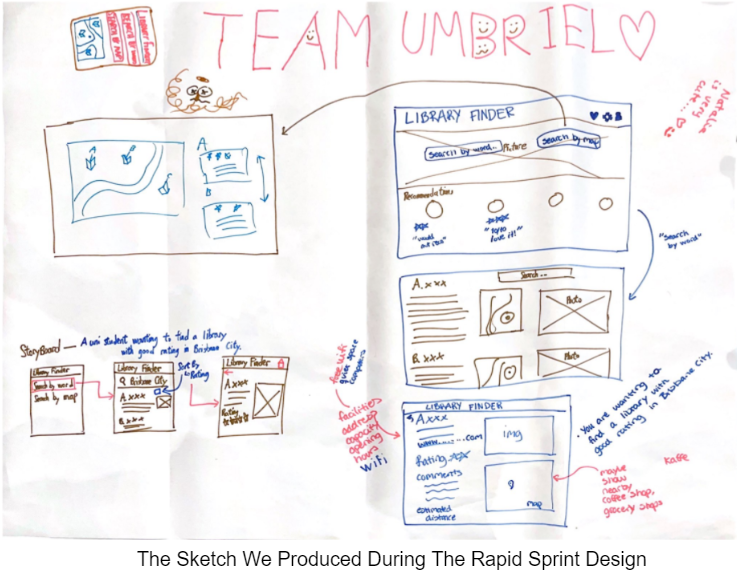 TEAM UMBRIEL
Library Finder
SEARCH BY WORD
SEARCH BY MAP
Natalie
is very
cute...
LIBRARY FINDER
Search by word...
Picture
Search by map
Recommendations
"would
"10/10
love it!"
A
B
"search
by word"
Search...
A. xxx
Photo
B. xxx
Photo
StoryBoard — A uni student wanting to find a library
with good rating in Brisbane City.
Library Finder
Search by word
Search by map
Library Finder
Brisbane City
A xxx
B xxx
Sort By
Rating
Library Finder
A xxx
Rating
free wifi
quiet space
computers
facilities
address
capacity
opening
hours
Wifi
LIBRARY FINDER
A xxx
www..........com
img
Rating
comments
estimated
distance
map
• You are wanting to
find a library with
good rating in Brisbane City.
maybe
show
nearby
coffee shop,
grocery shops
Kaffe
The Sketch We Produced During The Rapid Sprint Design